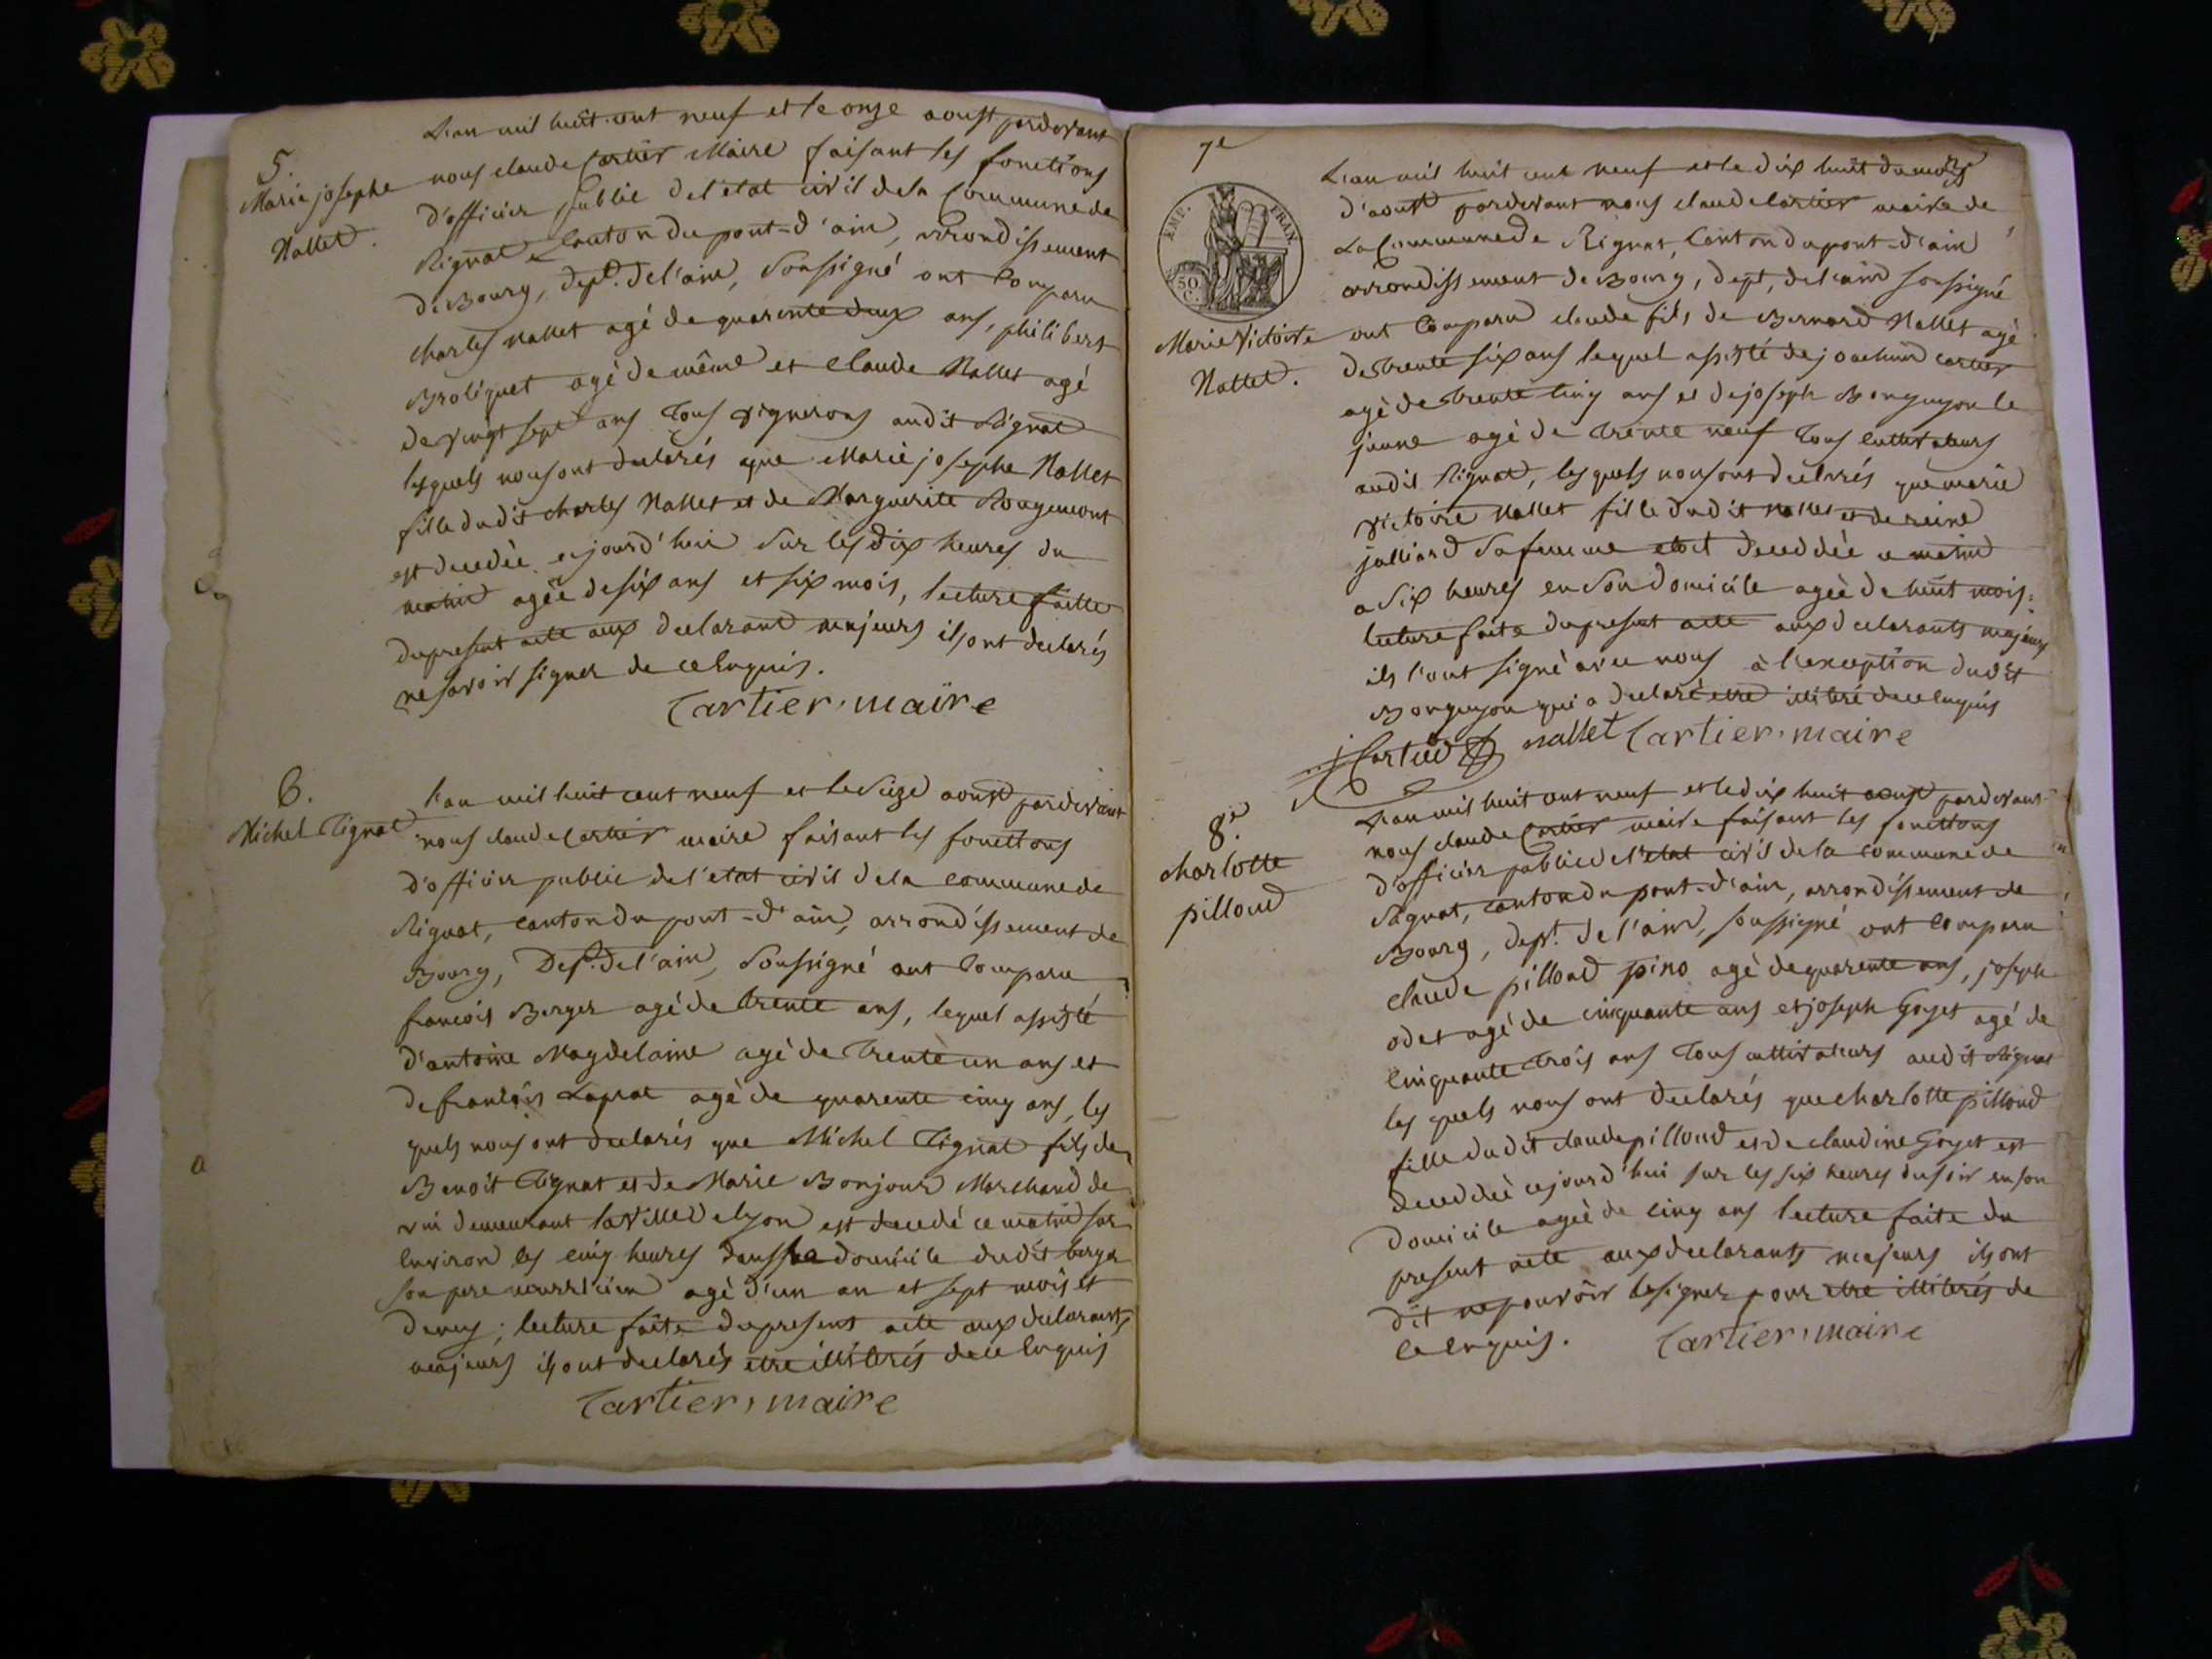 5.
Marie josephe
Nallet.
L'an mil huit cent neuf et le onze aoust pardevant
nous claude Cartier Maire faisant les fonctions
d'officier public de l'etat civil de la Commune de
Rignat canton du pont-d'ain, arrondissement
de Bourg, dept. de l'ain, Soussigné ont Comparu
charles Nallet agé de quarente deux ans, philibert
Broliquet agé de même et Claude Nallet agé
de vingt sept ans tous vignerons audit Rignat
lesquels nous ont declarés que Marie josephe Nallet
fille dudit charles Nallet et de Marguerite Rougemont
est decedée cejourd'hui Sur les dix heures du
matin agée de six ans et six mois, lecture faitte
du present acte aux declarant majeurs ils ont declarés
ne savoir signer de ce Enquis.
Cartier, maire
6.
Michel Tignat
L'an mil huit cent neuf et le Seize aoust pardevant
nous claude Cartier maire faisant les fonctions
d'officier public de l'etat civil de la Commune de
Rignat, canton du pont-d'ain, arrondissement de
Bourg, Dept. de l'ain, Soussigné ont Comparu
francois Berger agé de trente ans, lequel assisté
d'antoine Magdelaine agé de trente un ans et
de francois Laprat agé de quarente cinq ans, les
quels nous ont declarés que Michel Tignat fils de
Benoit Tignat et de Marie Bonjour Marchand de
vin demeurant la ville de lyon est decedé ce matin sur
Environ les cinq heures dans le domicile dudit berger
son pere nourricier agé d'un an et sept mois et
demy; lecture faite du present acte aux declarants
majeurs ils ont declarés etre illiterés de ce Enquis
Cartier, maire
7e
EMP. FRAN.
50 C.
Marie Victoire
Nallet.
L'an mil huit cent neuf et le dix huit du mois
d'aoust pardevant nous claude Cartier maire de
La Commune de Rignat, Canton du pont-d'ain
arrondissement de Bourg, dept, de l'ain soussigné
ont Comparu claude fils de Bernard Nallet agé
de trente six ans lequel assisté de joachim cartier
agé de trente cinq ans et de joseph Borguyon le
jeune agé de trente neuf tous cultivateurs
audit Rignat, lesquels nous ont declarés que marie
victoire Nallet fille dudit nallet et de reine
julliard Sa femme etoit deceddée ce matin
a Six heures en Son domicile agée de huit mois;
lecture faite du present acte aux declarants majeurs
ils l'ont signé avec nous à l'exception dudit
Borguyon qui a declaré etre illiteré de ce Enquis
j Cartier nallet Cartier, maire
8e.
charlotte
pilloud
L'an mil huit cent neuf et le dix huit aoust pardevant
nous claude Cartier maire faisant les fonctions
d'officier public de l'etat civil de la commune de
Rignat, canton du pont-d'ain, arrondissement de
Bourg, dept. de l'ain, soussigné ont Comparu
claude pilloud pino agé de quarente ans, joseph
odet agé de cinquante ans et joseph Goyet agé de
Cinquante trois ans tous cultivateurs audit Rignat
les quels nous ont declarés que charlotte pilloud
fille dudit claude pilloud et de claudine Goyet est
deceddée cejourd'hui sur les six heures du soir en son
domicile agée de cinq ans lecture faite du
present acte aux declarants majeurs ils ont
dit ne pouvoir le signer pour etre illiterés de
ce Enquis. Cartier, maire